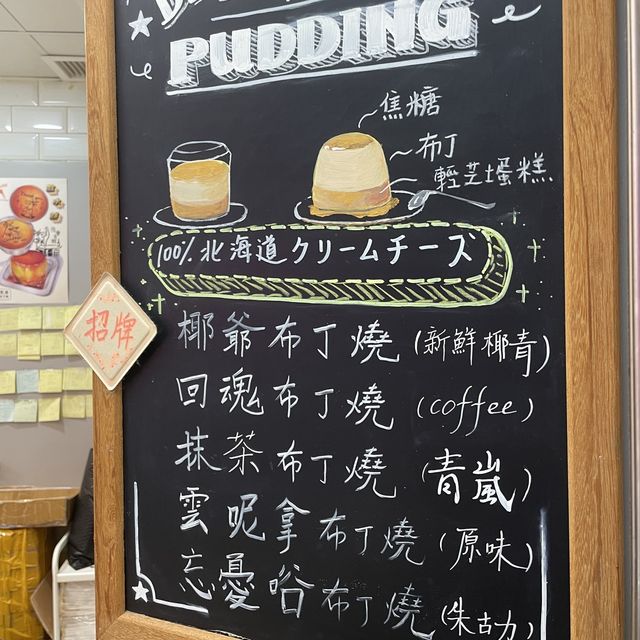 PUDDING
焦糖
布丁
輕芝士蛋糕
100% 北海道クリームチーズ
招牌
椰爺布丁燒 (新鮮椰青)
回魂布丁燒 (coffee)
抹茶布丁燒 (青嵐)
雲呢拿布丁燒 (原味)
忘憂啗布丁燒 (朱古力)